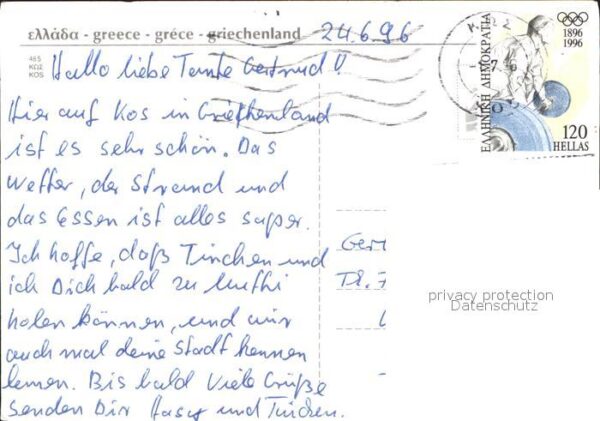 ελλάδα - greece - gréce - griechenland
24.6.96
465
ΚΩΣ
KOS
Hallo liebe Tante Gertrud!
Hier auf Kos in Griechenland
ist es sehr schön. Das
Wetter, der Strand und
das Essen ist alles super.
Ich hoffe, daß Tinchen und
ich Dich bald zu Mutti
holen können, und wir
auch mal deine Stadt kennen
lernen. Bis bald Viele Grüße
senden Dir und Tinchen.
ΕΛΛΗΝΙΚΗ ΔΗΜΟΚΡΑΤΙΑ
1896
1996
120
HELLAS
Gert
privacy protection
Datenschutz